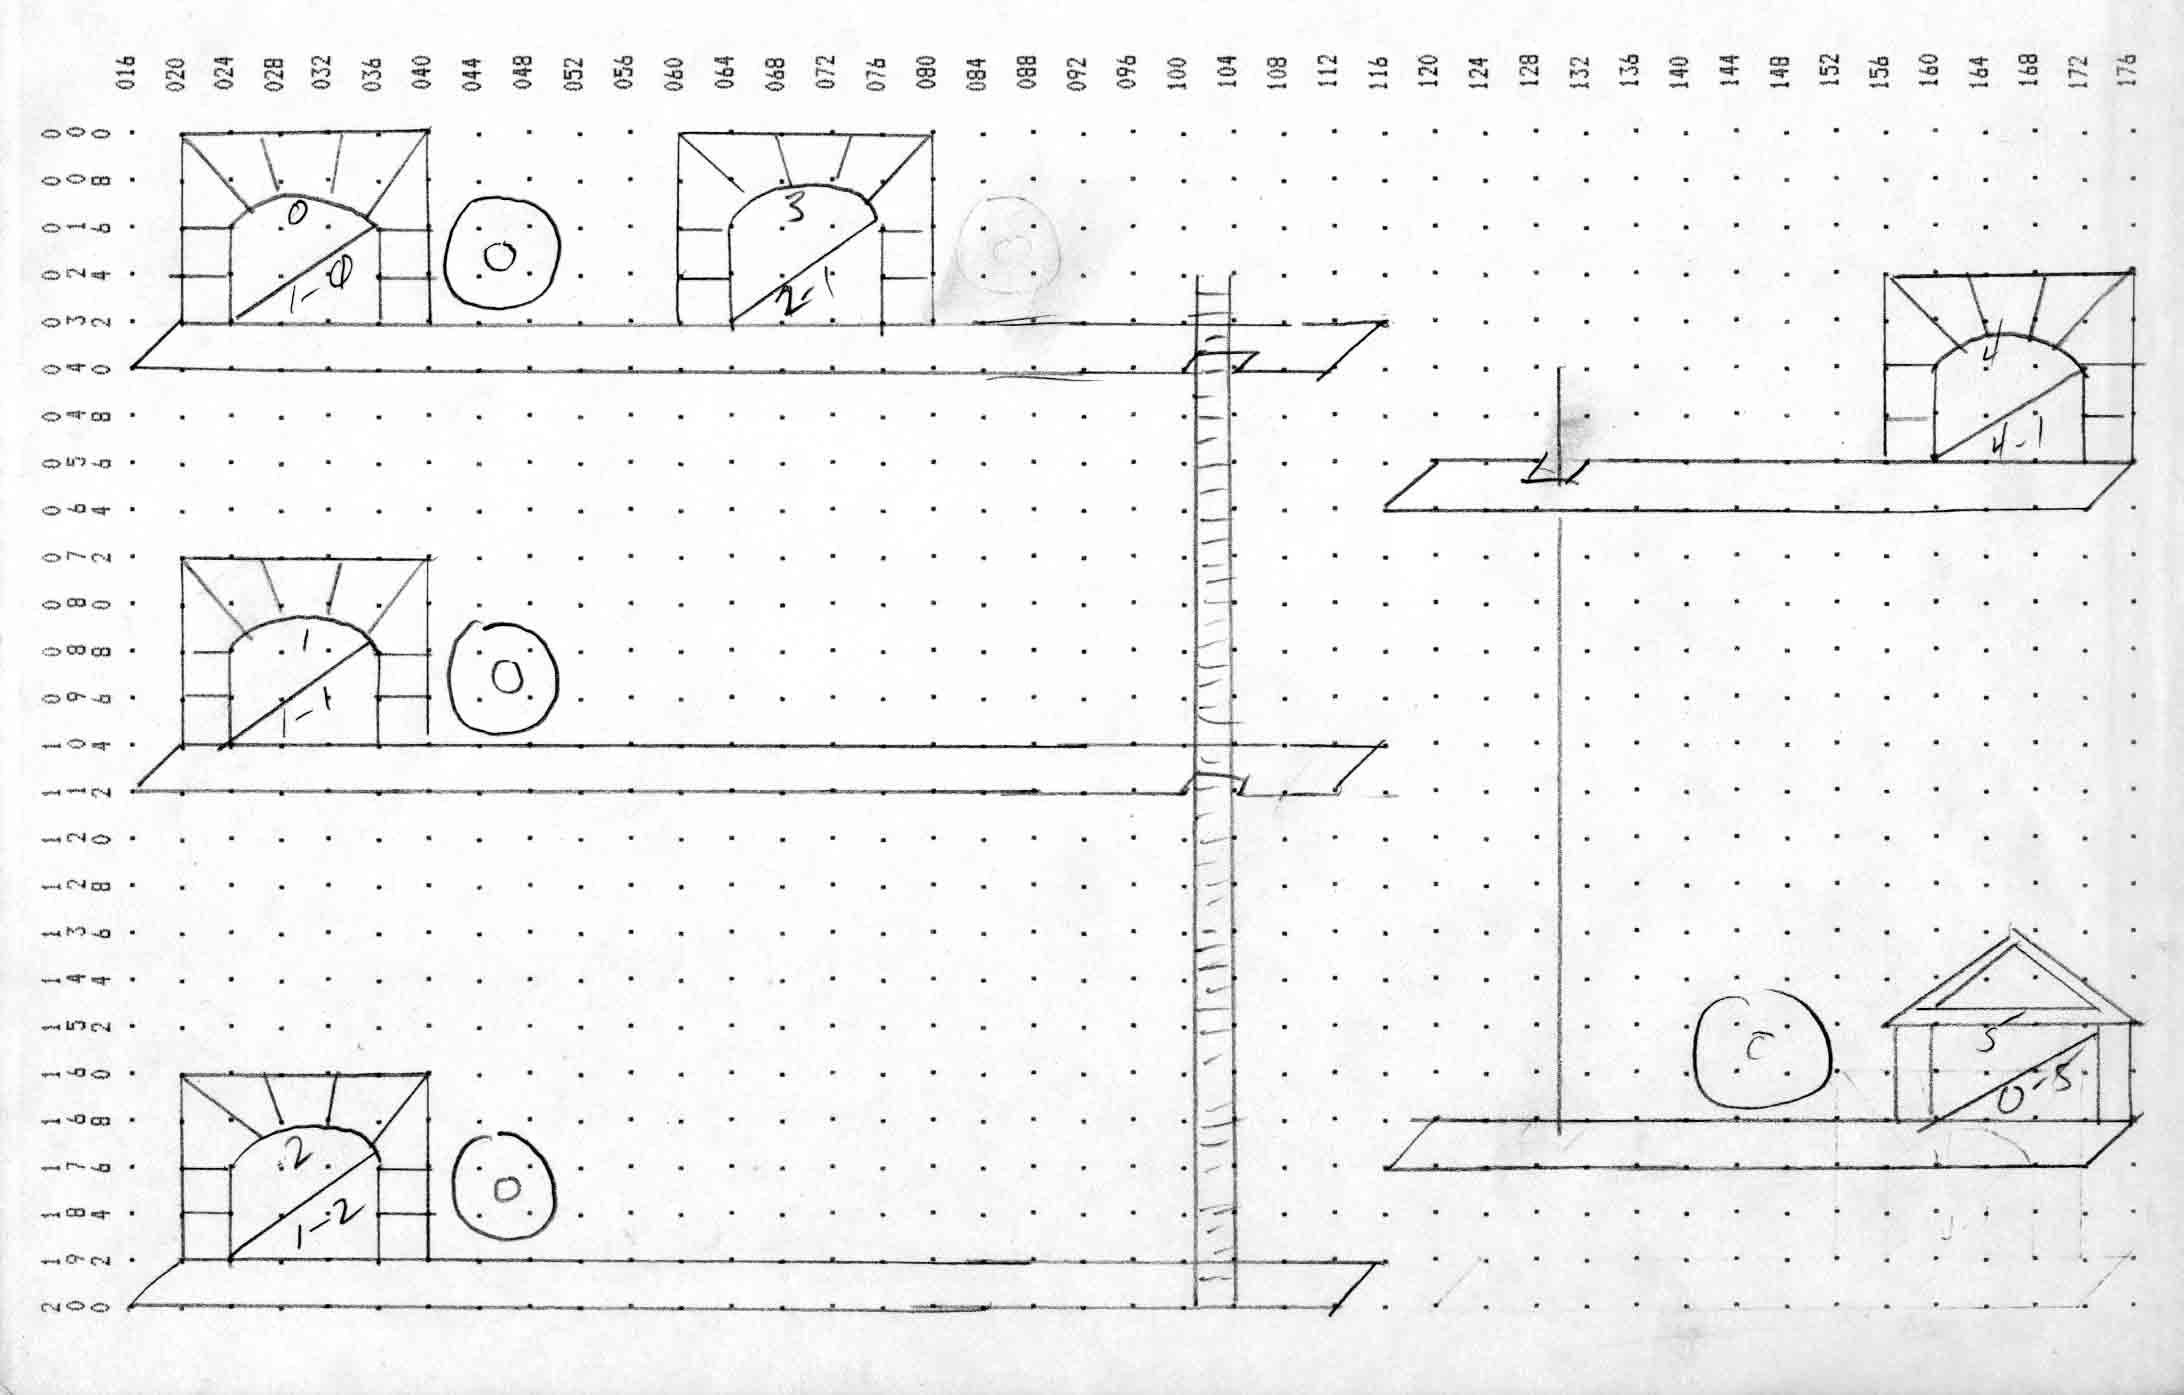 016 020 024 028 032 036 040 044 048 052 056 060 064 068 072 076 080 084 088 092 096 100 104 108 112 116 120 124 128 132 136 140 144 148 152 156 160 164 168 172 176
000
008
0 3
016
024
1-0 2-1
032
4
040
048
4-1
056
064
072
080
1
088
096
1-1
104
112
120
128
136
144
152
5
160
0-5
168
2
176
184
1-2
192
200